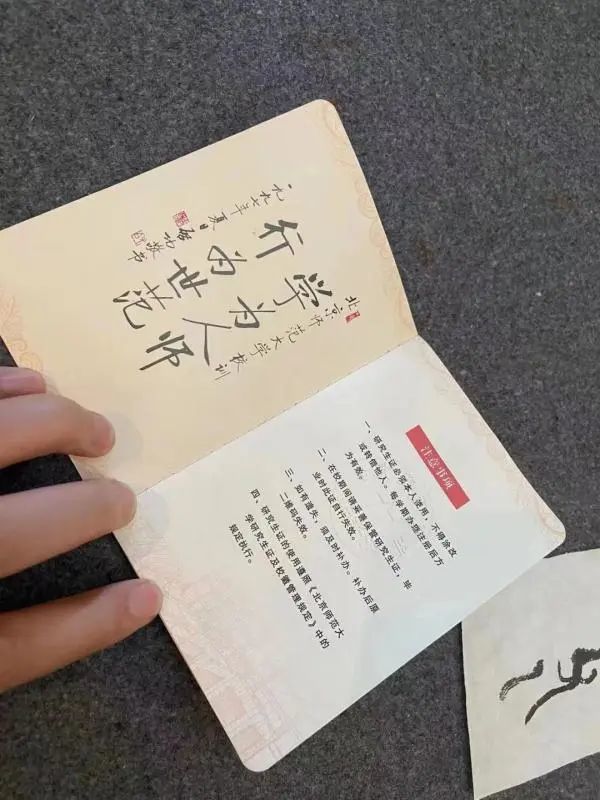 北京师范大学校训
学为人师
行为世范
一九九七年夏日
启功敬书
注意事项
一、研究生证必须本人使用，不得涂改
或转借他人。每学期办理注册后方
为有效。
二、在校期间请妥善保管研究生证，毕
业时此证自行失效。
三、如有遗失，须及时补办。补办后原
二维码失效。
四、研究生证的使用遵照《北京师范大
学研究生证及校徽管理规定》中的
规定执行。